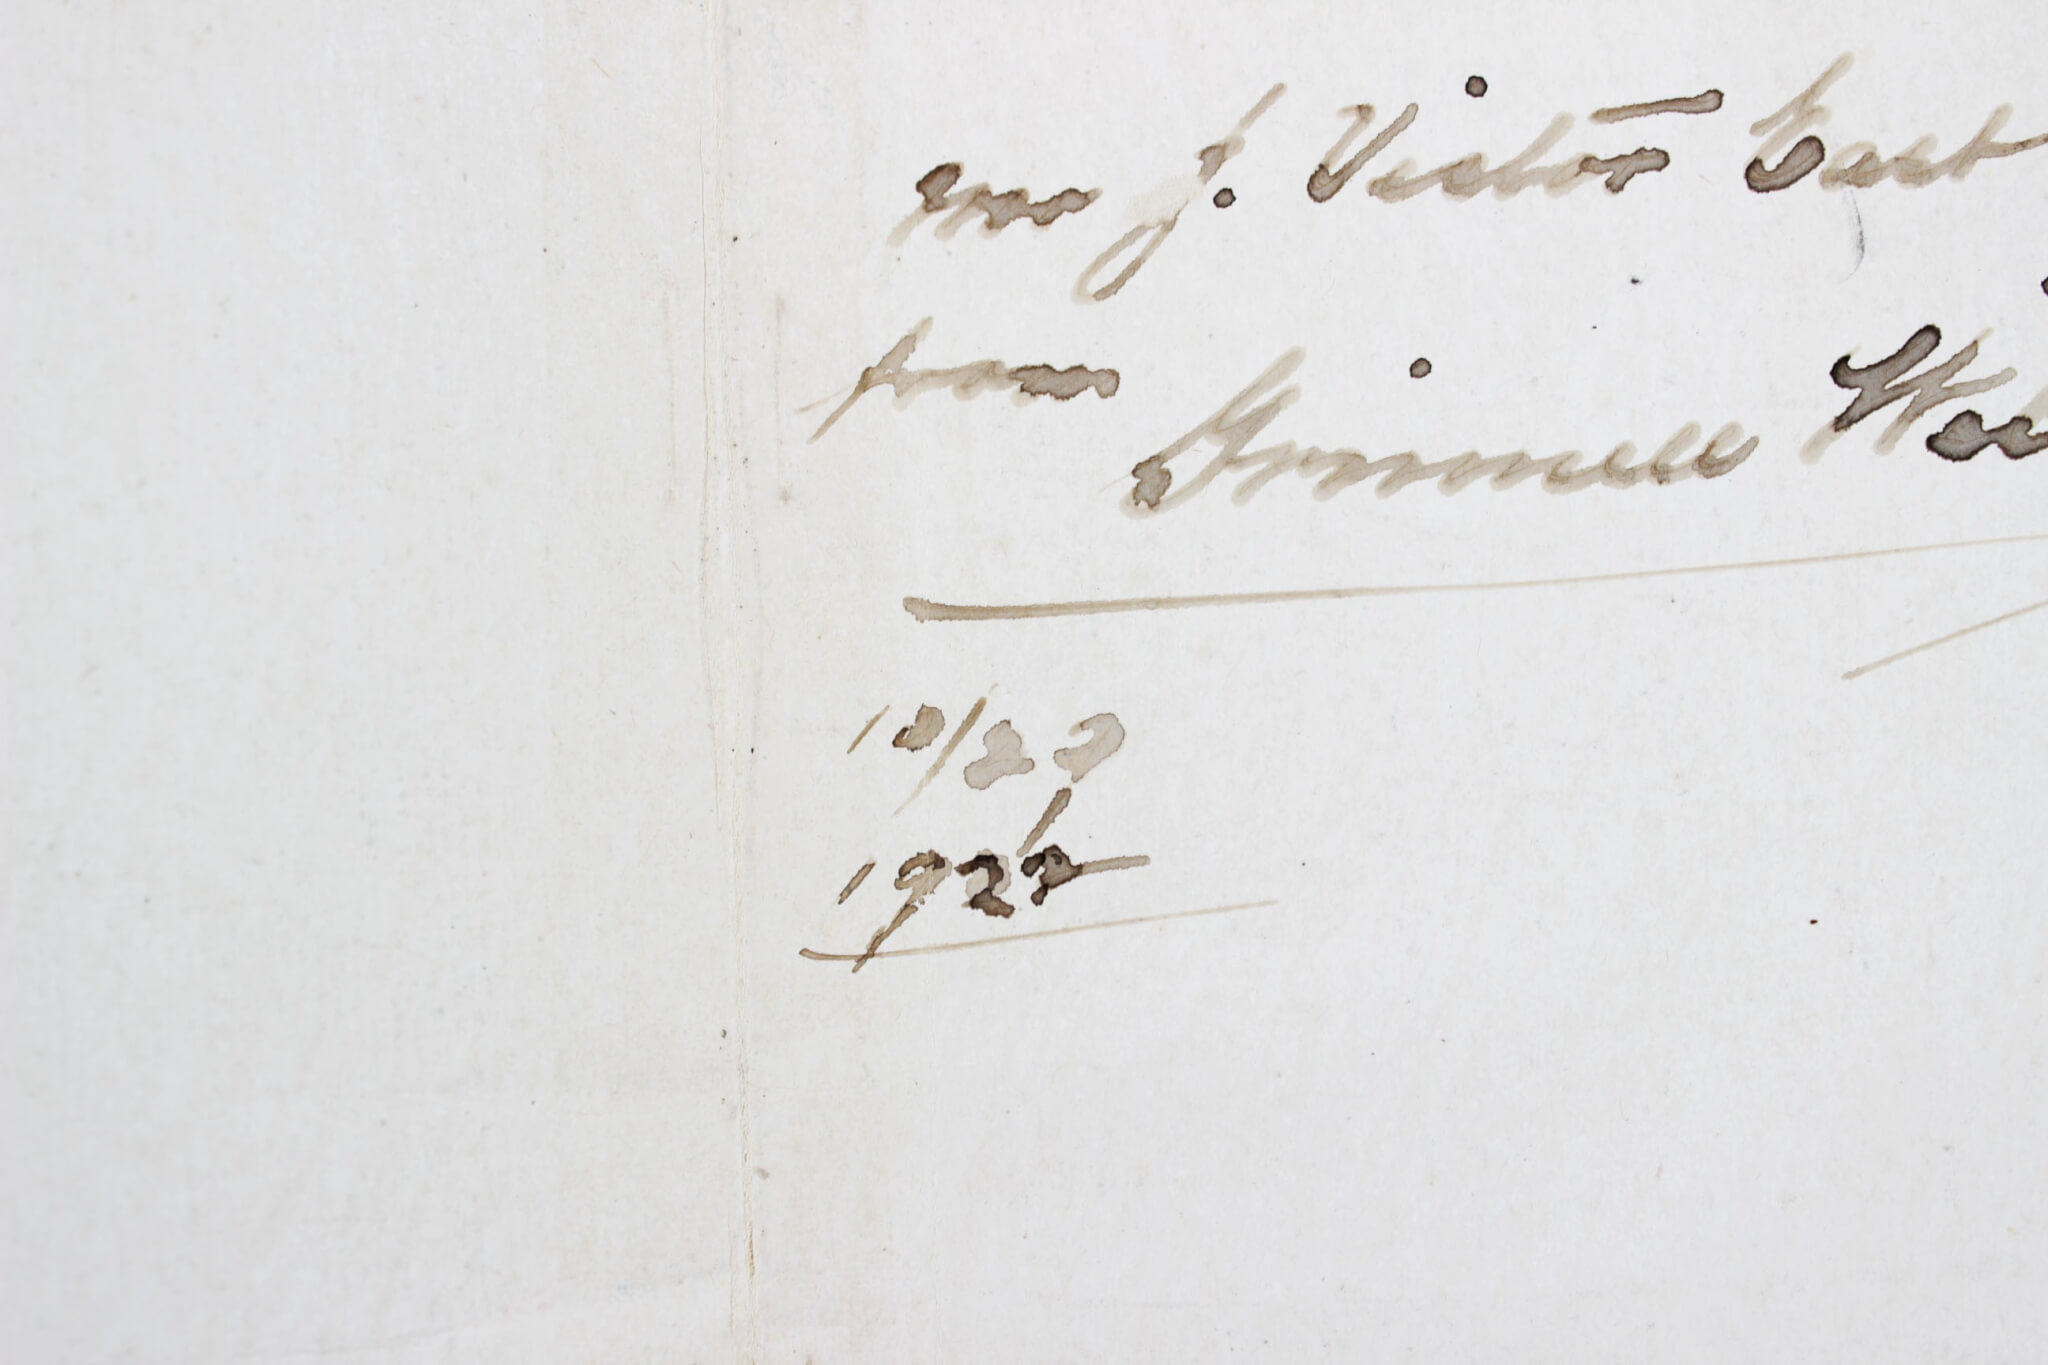 Mr J. Victor East
from
Grinnell
10/29
1922